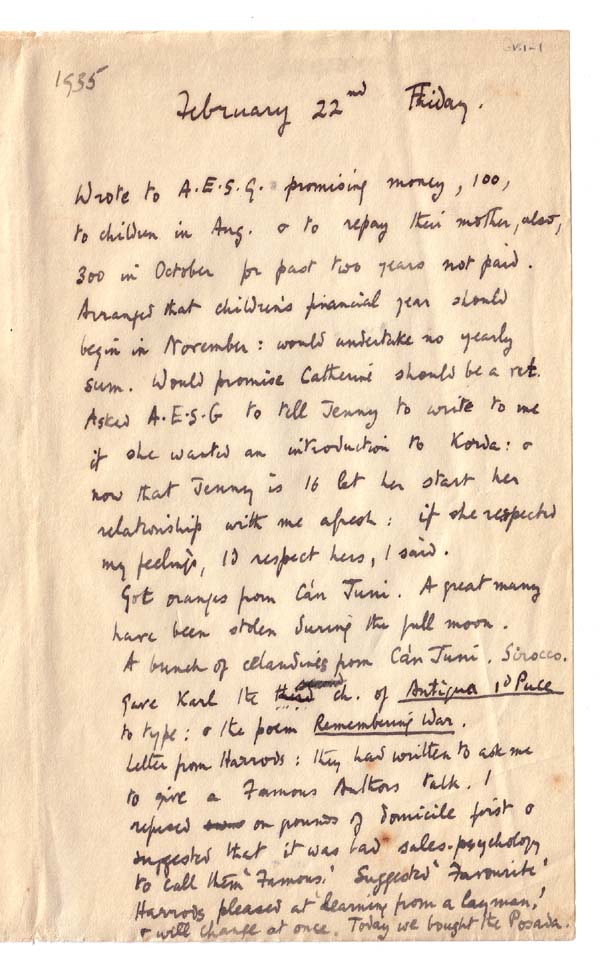 1935
February 22nd Friday.
Wrote to A.E.S.G. promising money, 100,
to children in Aug. & to repay their mother, also,
300 in October for past two years not paid.
Arranged that children's financial year should
begin in November: would undertake no yearly
sum. Would promise Catherine should be a ret.
Asked A.E.S-G to tell Jenny to write to me
if she wanted an introduction to Korda: &
now that Jenny is 16 let her start her
relationship with me afresh: if she respected
my feelings, I'd respect hers, I said.
Got oranges from Ca'n Juni. A great many
have been stolen during the full moon.
A bunch of celandines from Ca'n Juni. Sirocco.
Gave Karl the second ch. of Antigua 1d Puce
to type: & the poem Remembering War.
Letter from Harrods: they had written to ask me
to give a Famous Authors talk. I
refused on grounds of domicile first &
suggested that it was bad sales-psychology
to call them 'Famous'. Suggested 'Favourite'
Harrods pleased at 'learning from a layman,'
& will change at once. Today we bought the Posada.